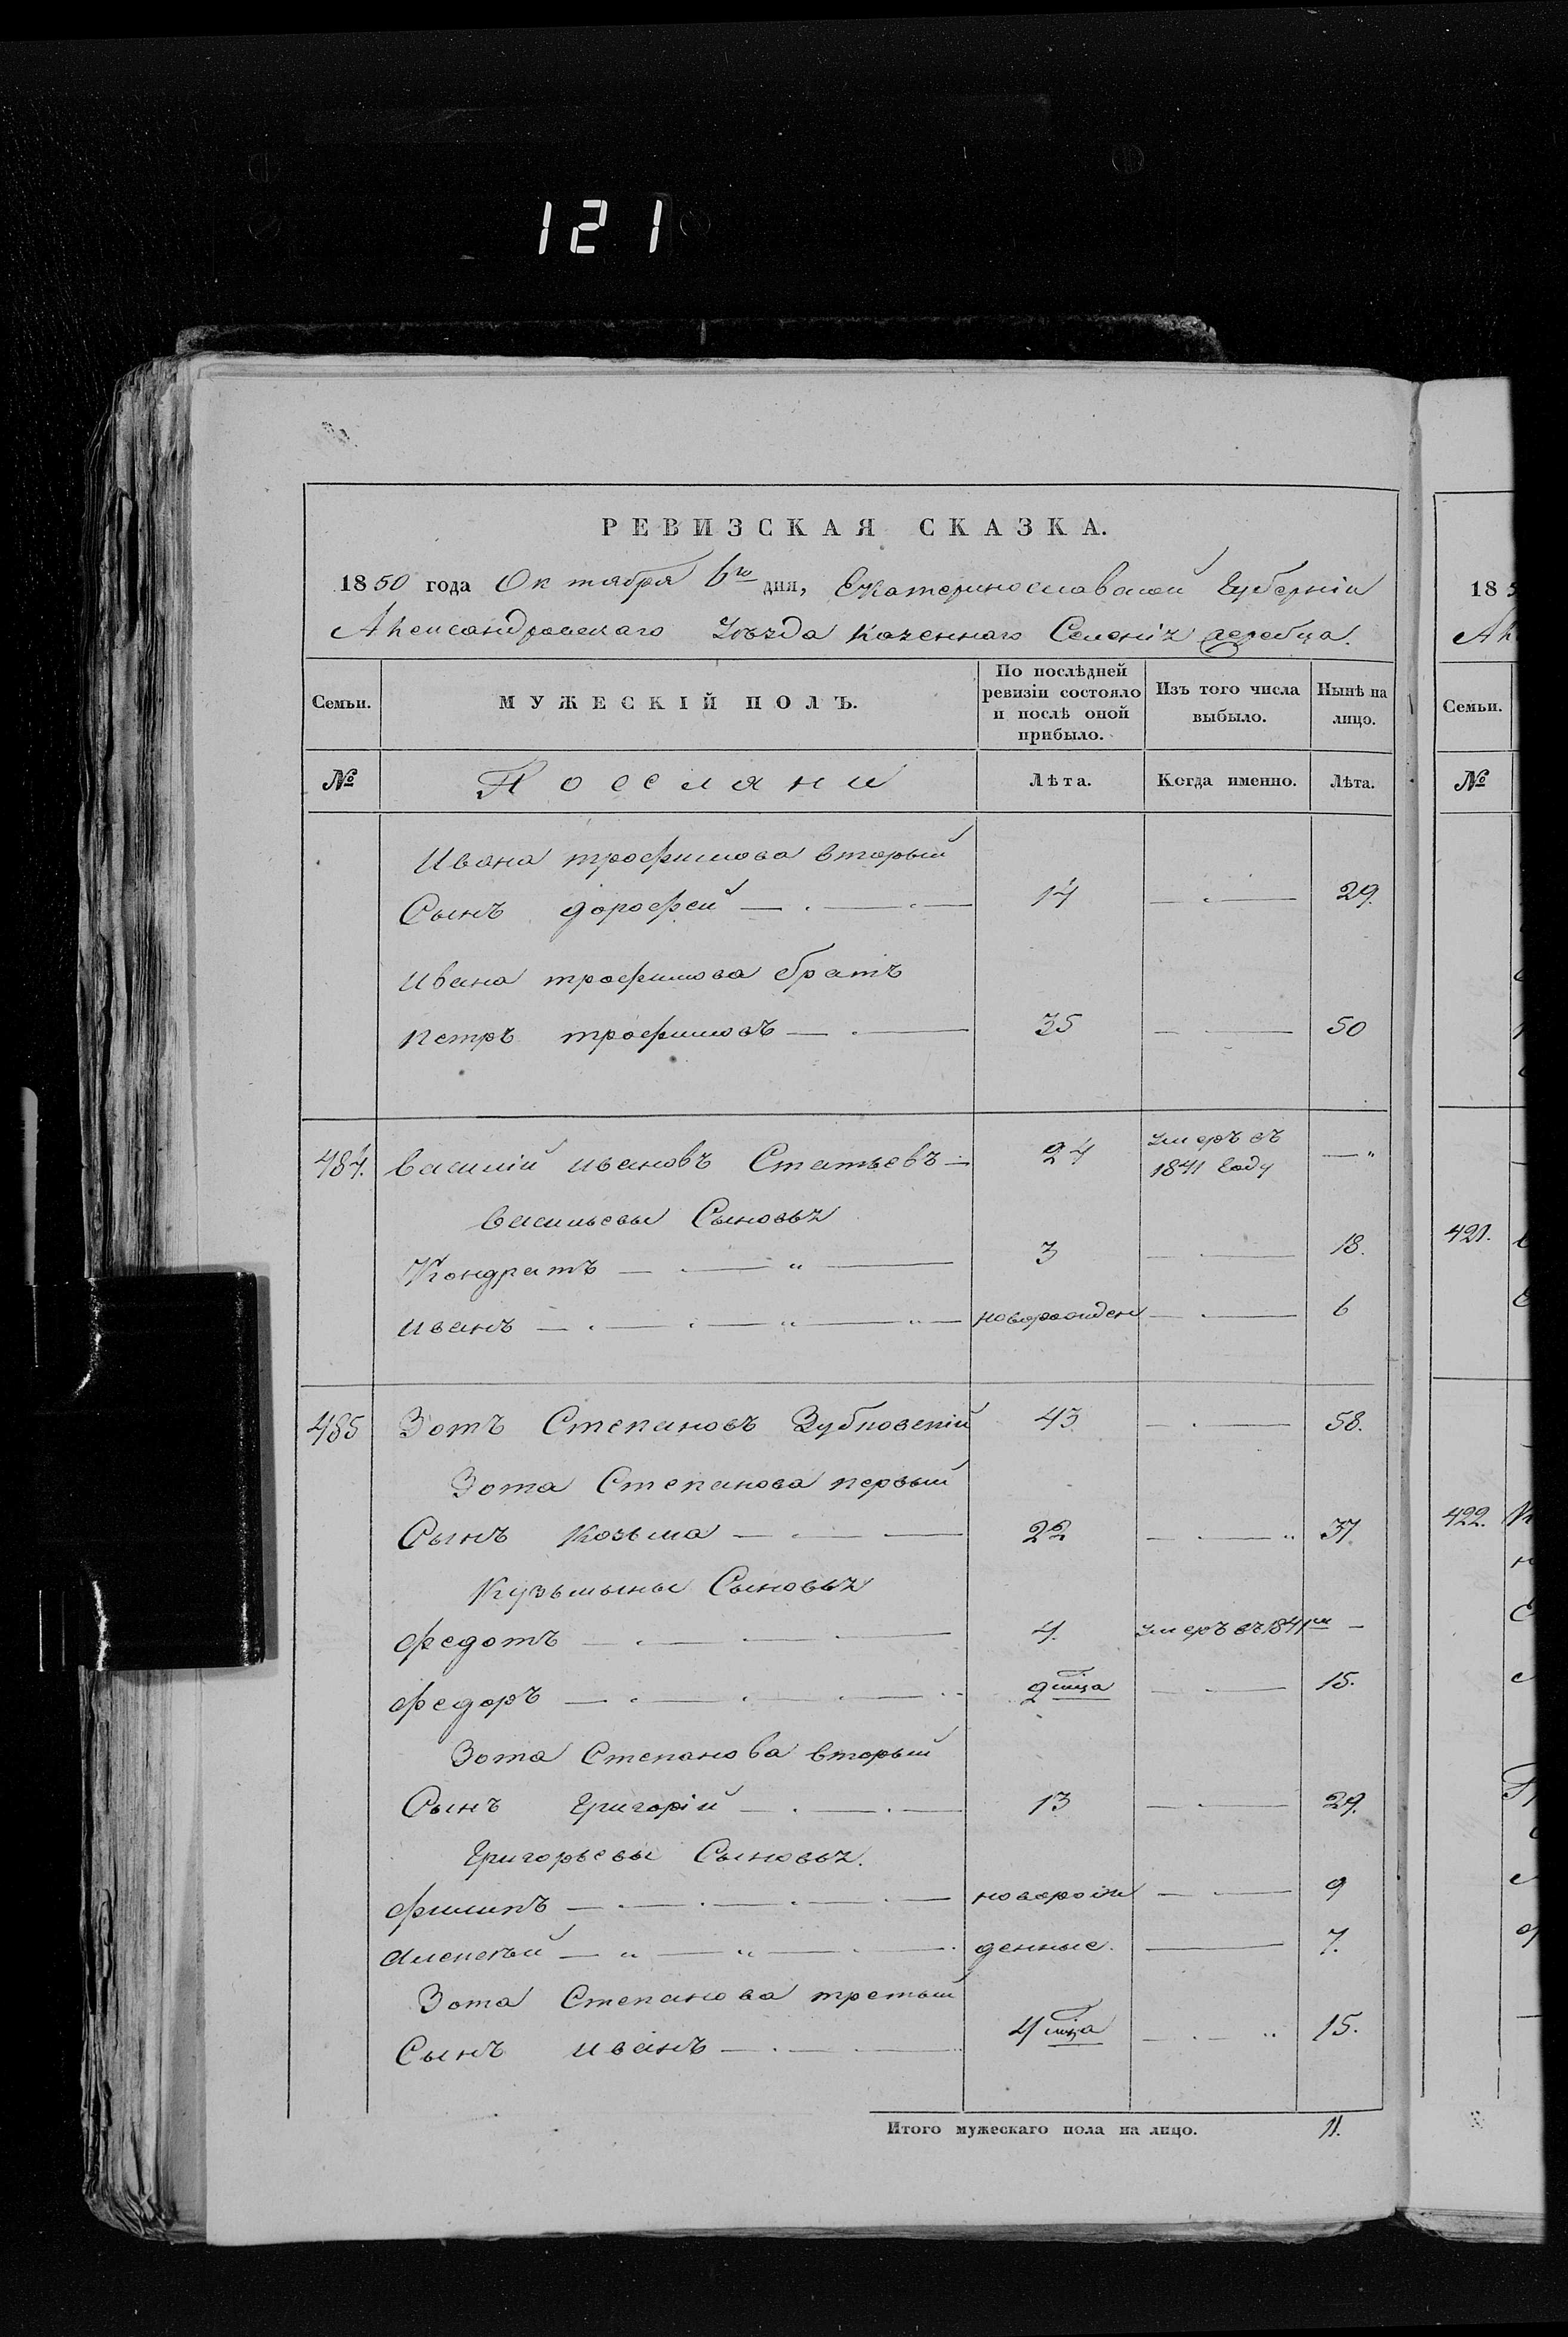 121
РЕВИЗСКАЯ СКАЗКА.
1850 года Октября 6го дня, Екатеринославской Губерніи
Александровскаго Уѣзда Казеннаго Селенія жеребца.
Семьи.
МУЖЕСКІЙ ПОЛЪ.
По послѣдней ревизіи состояло и послѣ оной прибыло.
Изъ того числа выбыло.
Нынѣ на лицо.
Семьи.
№
Поселяни
Лѣта.
Когда именно.
Лѣта.
№
Ивана трофимова вторый
Сынъ дорофей — 14 — 29.
Ивана трофимова братъ
петръ трофимовъ — 35 — 50
484. Василій ивановъ Статьевъ — 24 умеръ въ 1841 Году — "
Васильевы Сыновья
Кондратъ — 3 — 18.
иванъ — новорожден — 6
485 Зотъ Степановъ Зубковскій 43 — 58.
Зота Степанова первый
Сынъ Козьма — 22 — 37.
Кузьмины Сыновья
федотъ — 4. умеръ въ 1841м —
федоръ — 2 мца — 15.
Зота Степанова вторый
Сынъ Григорій — 13 — 29.
Григорьевы Сыновья.
филипъ — новорож — 9
Алексѣй — денные. — 7.
Зота Степанова третий
Сынъ иванъ — 4 мца — 15.
Итого мужескаго пола на лицо. 11.
185
421.
422.